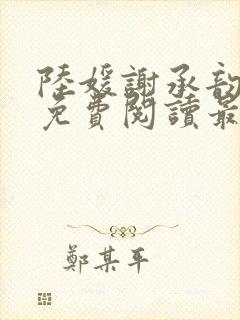 陸媛謝承韵
免費閱讀最
鄭某平